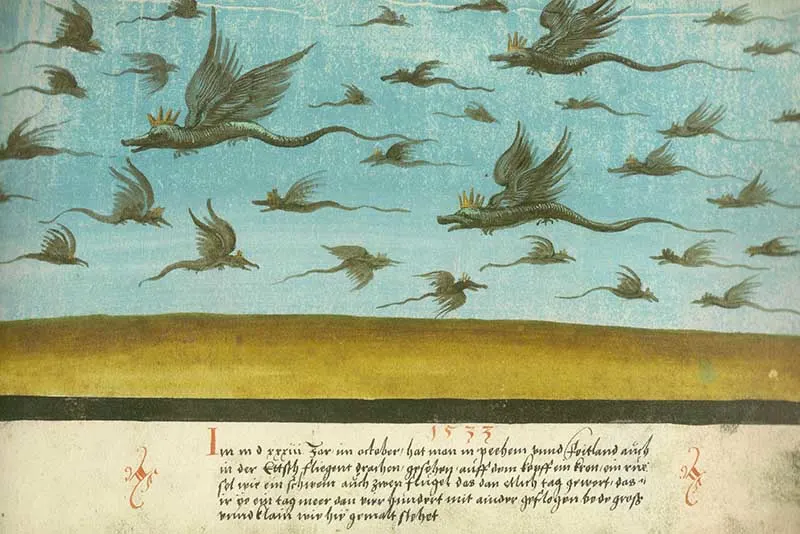 1533
Im m d xxxiii Jar im october, hat man in pechem vnnd Foitland auch
in der Etsch fliegent drachen gesehen auff dem kopff ein kron, ein rüe
sel wie ein schwein auch zwen flügel das dan etlich tag gewert, das
ir ein tag meer dan vier hundert mit ainder geflogen bede groß
vnnd klain wie hie gemalt stehet